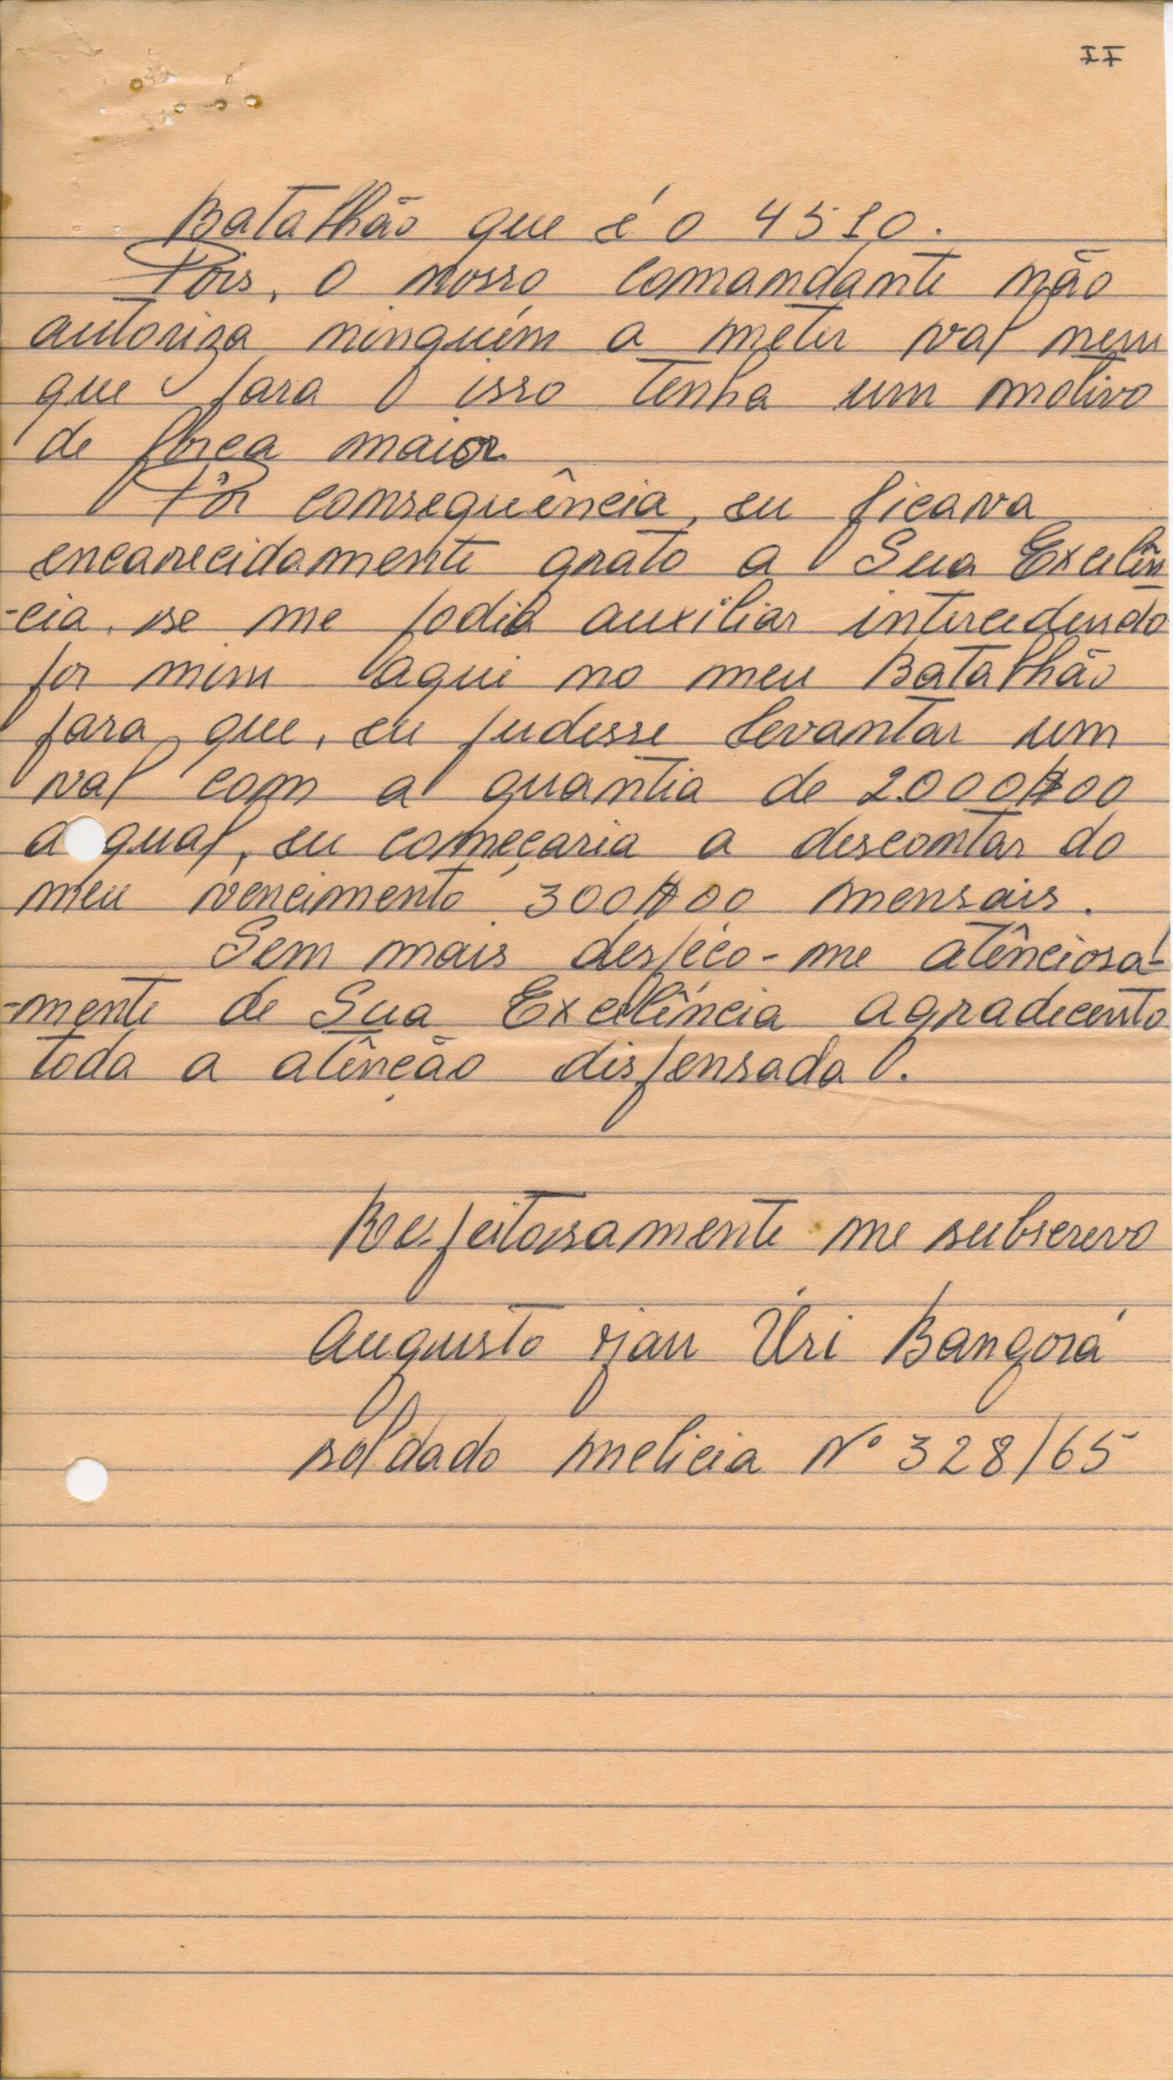 II
Batalhão que é o 4510.
Pois, o nosso comandante não
autoriza ninguém a meter val nem
que para isso tenha um motivo
de força maior.
Por consequência, eu ficava
encarecidamente grato a Sua Excelên
-cia, se me podia auxiliar intercedendo
por mim aqui no meu Batalhão
para que, eu pudesse levantar um
val com a quantia de 2.000$00
a qual, eu começaria a descontar do
meu vencimento 300$00 mensais.
Sem mais despéço-me atênciosa-
-mente de Sua Excelência agradecento
toda a atênção dispensada.
Respeitosamente me subscrevo
Augusto Úri Bangorá
soldado melicia Nº 328/65